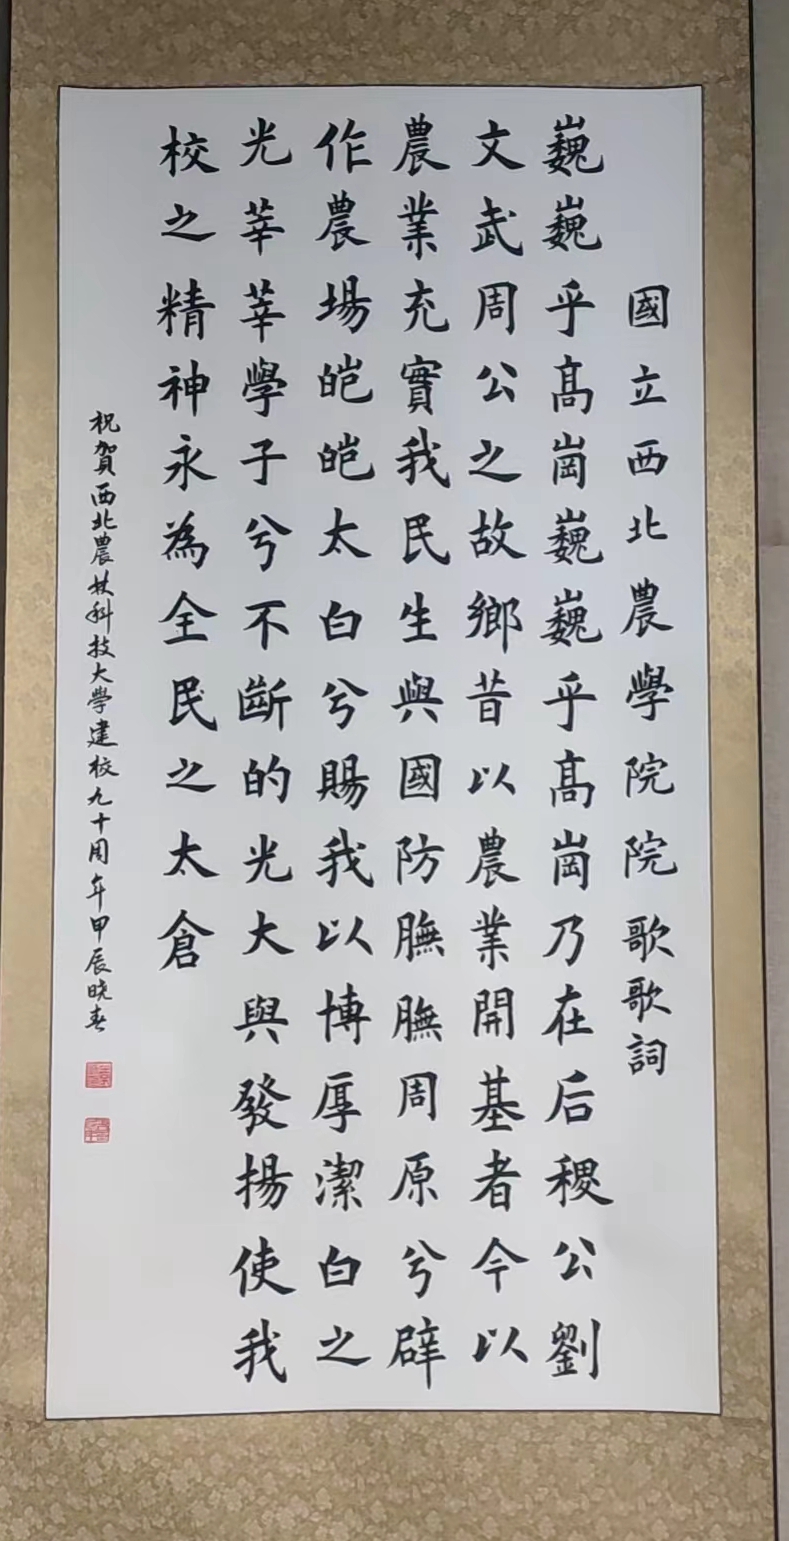 國立西北農學院院歌歌詞
巍巍乎髙崗巍巍乎髙崗乃在后稷公劉
文武周公之故鄉昔以農業開基者今以
農業充實我民生與國防膴膴周原兮辟
作農場皑皑太白兮賜我以博厚潔白之
光莘莘學子兮不斷的光大與發揚使我
校之精神永為全民之太倉
祝賀西北農林科技大學建校九十周年甲辰曉春